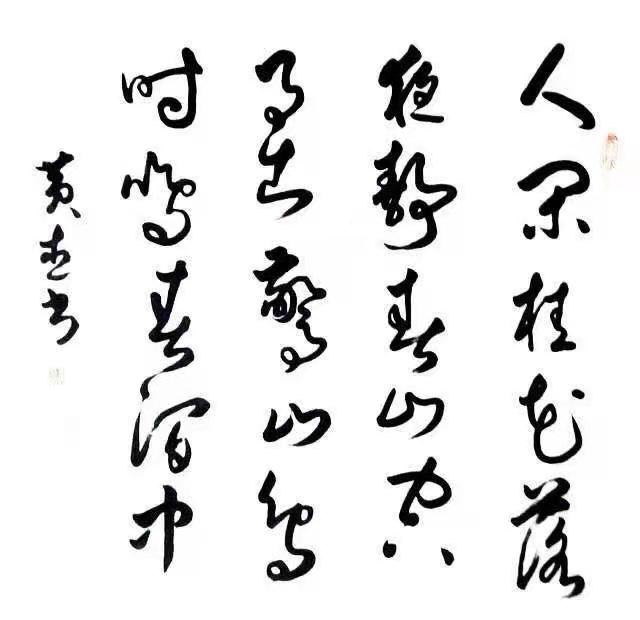 人闲桂花落
夜静春山空
月出驚山鸟
时鸣春涧中
黄书